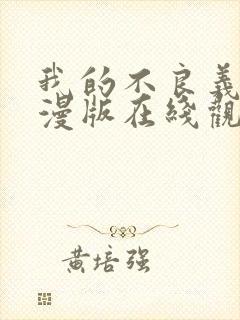 我的不良義
漫版在綫觀
黃培强